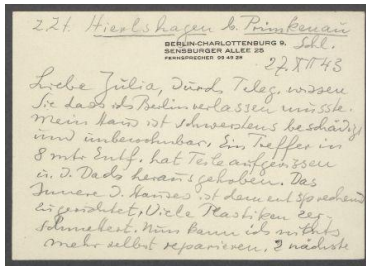 z. Zt. Hierlshagen b. Primkenau
Schl.
BERLIN-CHARLOTTENBURG 9,
SENSBURGER ALLEE 25
FERNSPRECHER 99 43 29
27.XII 43
Liebe Julia, Durch Teleg. wissen
Sie dass ich Berlin verlassen musste.
Mein Haus ist schwerstens beschädigt
und unbewohnbar. Ein Treffer in
8 mtr Entf. hat Teile aufgerissen
u. d. Dach herausgehoben. Das
Innere d. Hauses ist dementsprechend
zugerichtet, Viele Plastiken zer-
schmettert. Nun kann ich nichts
mehr selbst reparieren. D nächste